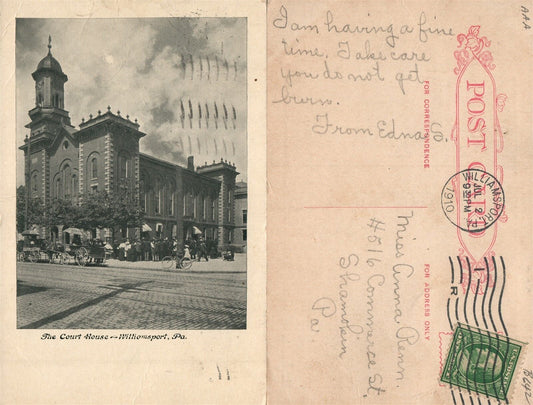 The Court House — Williamsport, Pa.
I am having a fine
time. Take care
you do not get
burn.
From Edna S.
FOR CORRESPONDENCE
POST CARD
WILLIAMSPORT, PA.
JUL 2
930 PM
1910
Miss Anna Penn.
#516 Commerce St.
Shamokin
Pa
FOR ADDRESS ONLY
1
R
AAA
B642